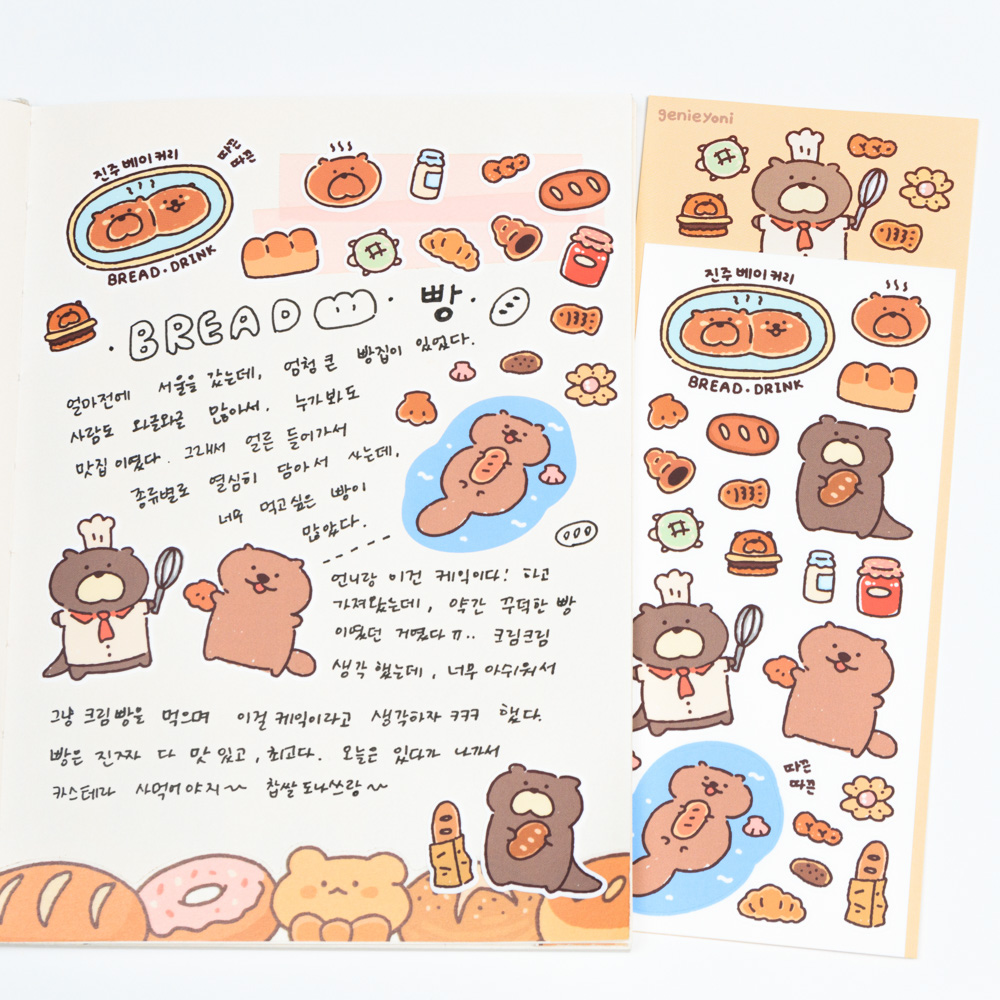 진주 베이커리
따끈
따끈
BREAD·DRINK
·BREAD·빵·
얼마전에 서울을 갔는데, 엄청 큰 빵집이 있었다.
사람도 와글와글 많아서, 누가봐도
맛집이었다. 그래서 얼른 들어가서
종류별로 열심히 담아서 사는데,
너무 먹고싶은 빵이
많았다.
언니랑 이건 케익이다! 하고
가져왔는데, 약간 꾸덕한 빵
이였던 거였다 ㅠ.. 크림크림
생각 했는데, 너무 아쉬워서
그냥 크림빵을 먹으며 이걸 케익이라고 생각하자 ㅋㅋㅋ 했다.
빵은 진짜 다 맛있고, 최고다. 오늘은 있다가 나가서
카스테라 사먹어야지~ 찹쌀도나쓰랑~
genieyoni
진주 베이커리
BREAD·DRINK
따끈
따끈